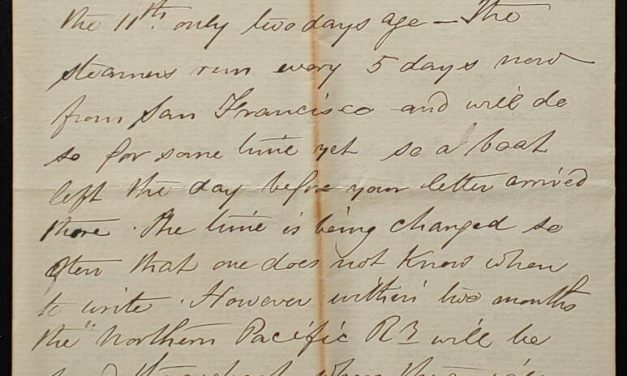 the 11th. only two days age - The
steamers run every 5 days now
from San Francisco and will do
so for some time yet so a boat
left the day before your letter arrived
there. The time is being changed so
often that one does not know when
to write. However within two months
the "Northern Pacific RR will be